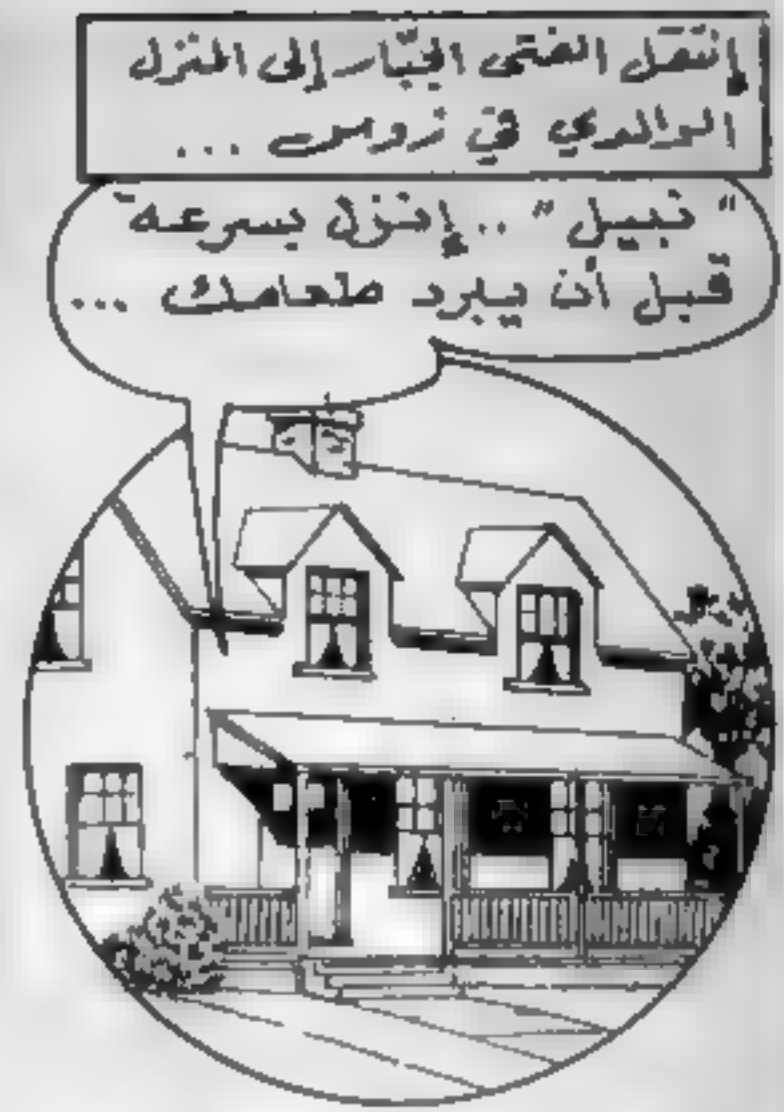 إنتقل الفتى الجبّار إلى المنزل
الوالدي في زومر ...
"نبيل" .. إنزل بسرعة
قبل أن يبرد طعامك ...